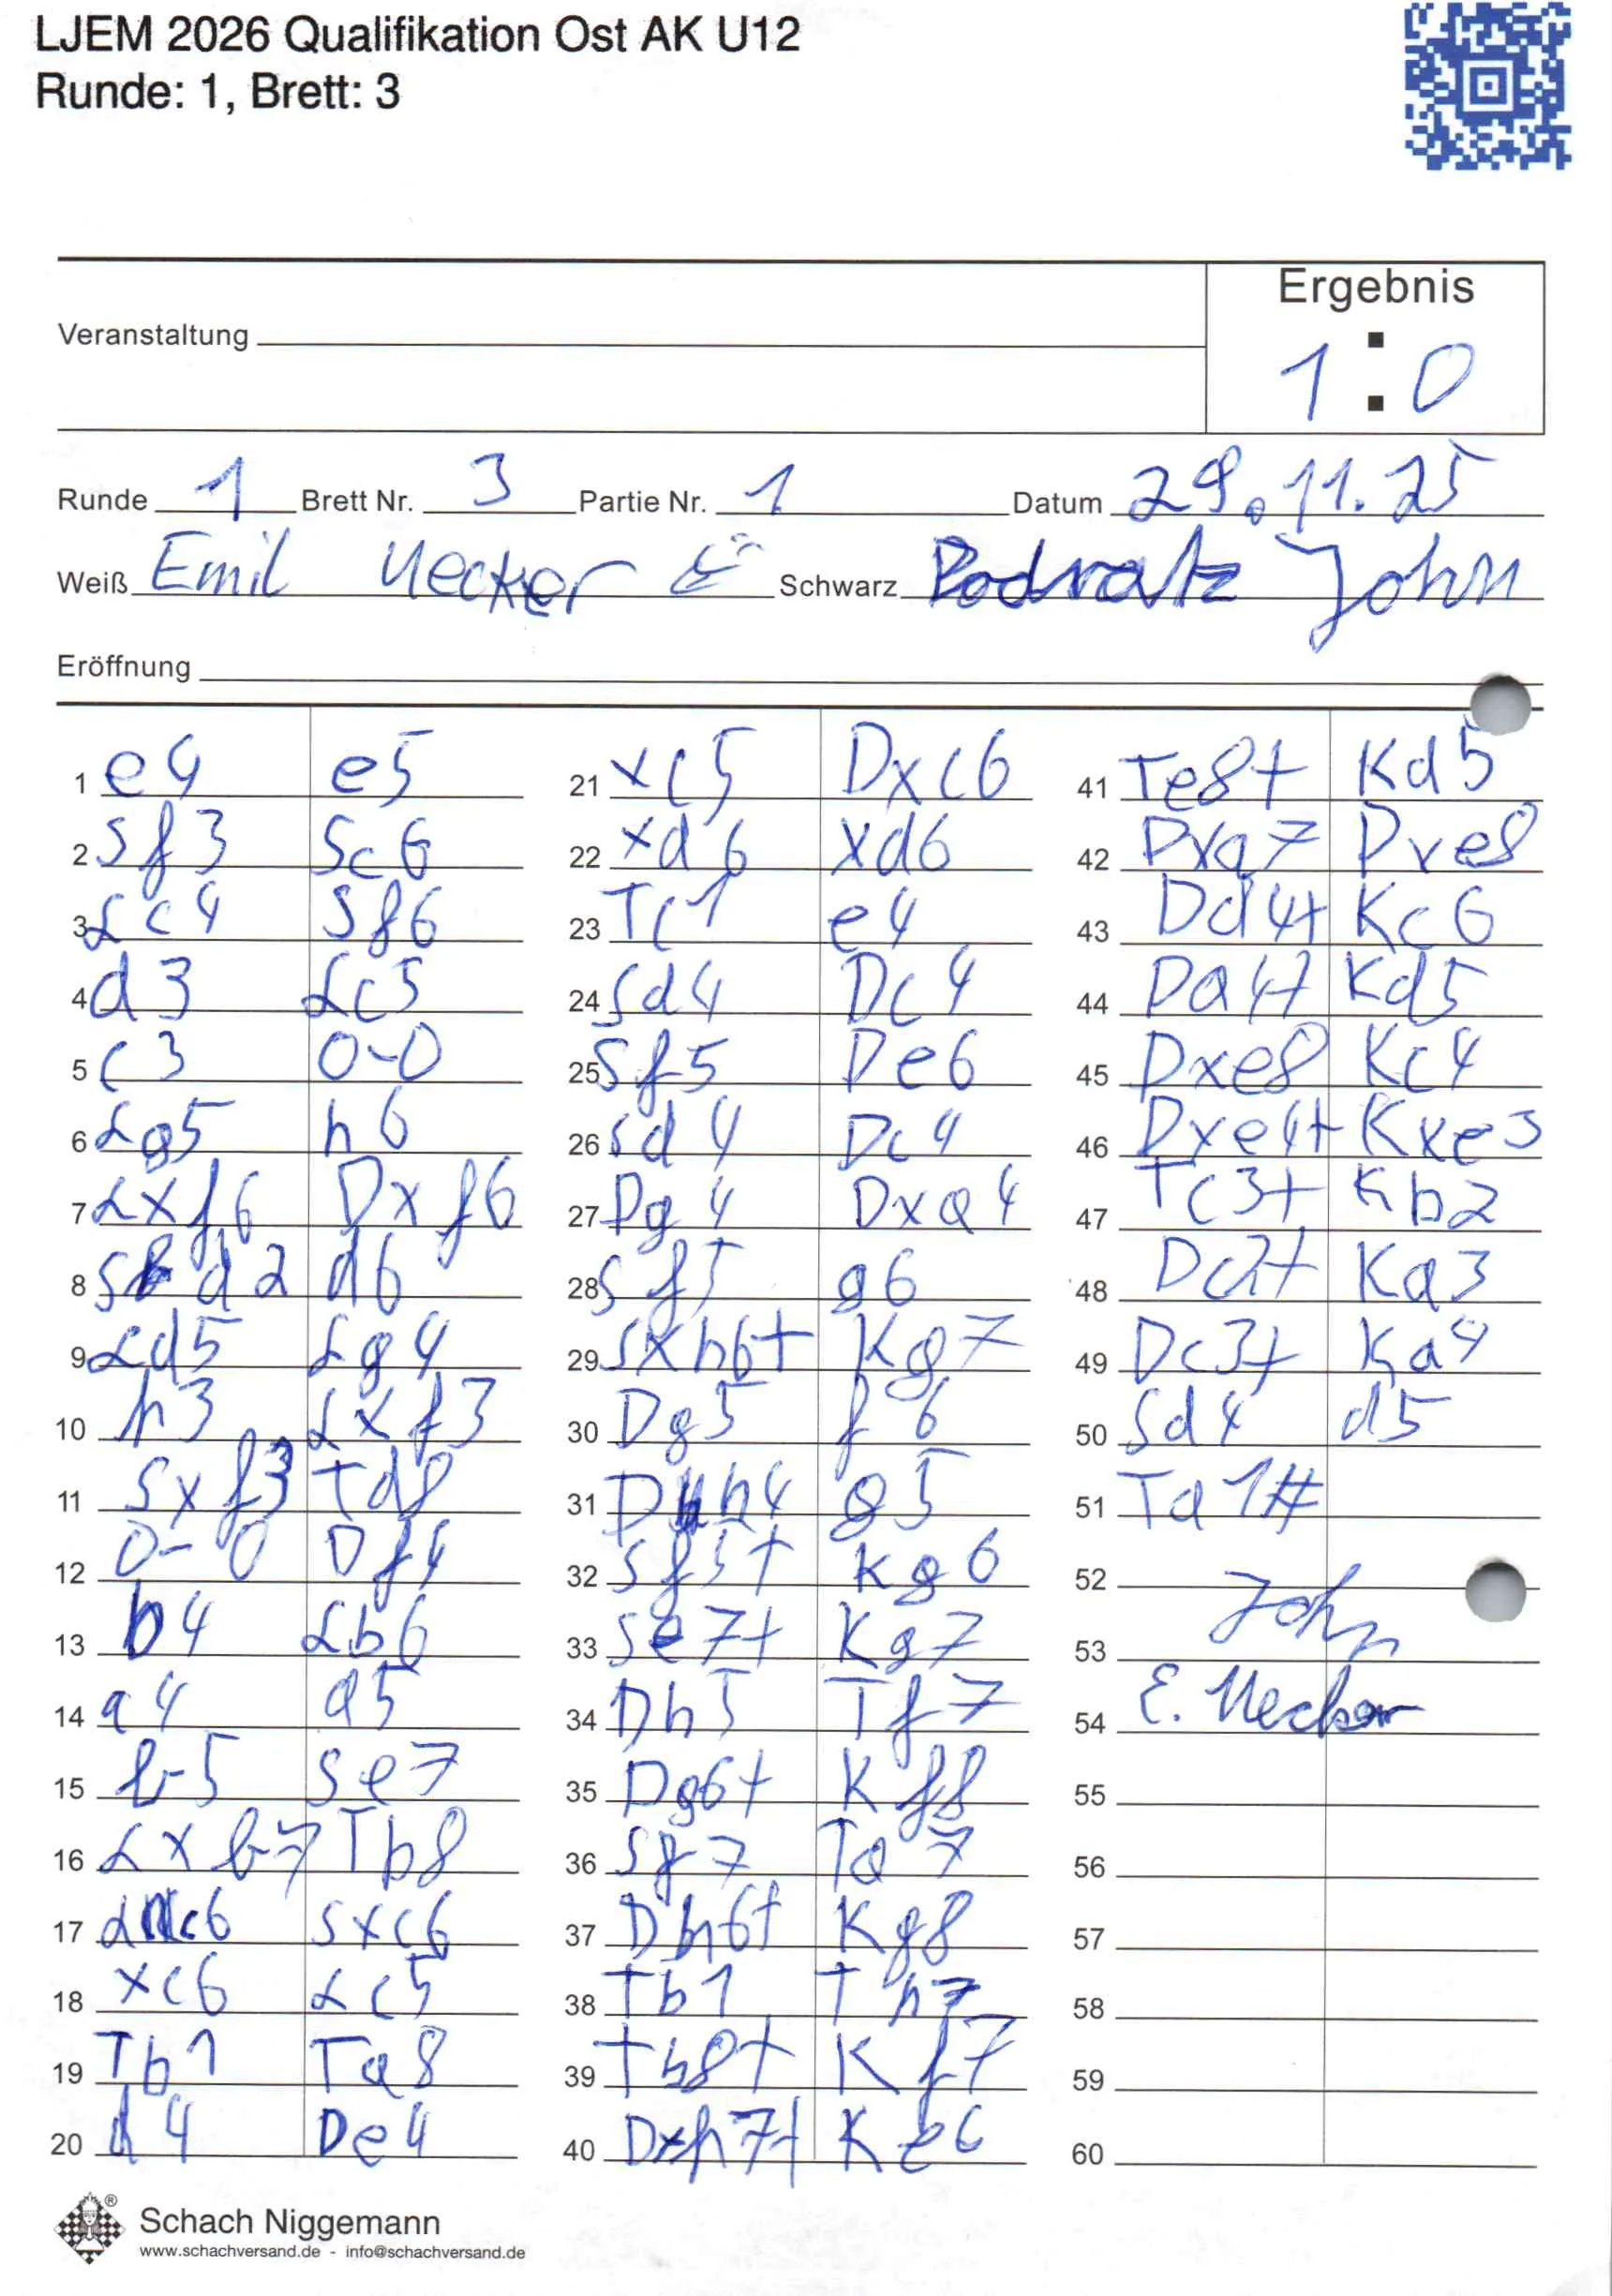 LJEM 2026 Qualifikation Ost AK U12
Runde: 1, Brett: 3
Ergebnis
Veranstaltung
1 : 0
Runde 1 Brett Nr. 3 Partie Nr. 1 Datum 29.11.25
Weiß Emil Uecker Schwarz Podratz John
Eröffnung
1 e4 e5
2 Sf3 Sc6
3 Lc4 Sf6
4 d3 Lc5
5 c3 0-0
6 Lg5 h6
7 Lxf6 Dxf6
8 Sd2 d6
9 Ld5 Lg4
10 h3 Lxf3
11 Sxf3 Td8
12 0-0 Df4
13 b4 Lb6
14 a4 a5
15 b5 Se7
16 Lxb7 Tb8
17 Lc6 Sxc6
18 xc6 Lc5
19 Tb1 Ta8
20 d4 De4
21 xc5 Dxc6
22 xd6 xd6
23 Tc1 e4
24 Sd4 Dc4
25 Sf5 De6
26 Sd4 Dc4
27 Dg4 Dxa4
28 Sf5 g6
29 Sxh6+ Kg7
30 Dg5 f6
31 Dh4 g5
32 Sf5+ Kg6
33 Se7+ Kg7
34 Dh5 Tf7
35 Dg6+ Kf8
36 Sf7 Ta7
37 Dh6+ Kg8
38 Tb1 Th7
39 Tb8+ Kf7
40 Dxh7+ Ke6
41 Te8+ Kd5
42 Dxa7 Dxe8
43 Dd4+ Kc6
44 Da4+ Kd5
45 Dxe8 Kc4
46 Dxe4+ Kxe3
47 Tc3+ Kb2
48 Dc2+ Ka3
49 Dc3+ Ka4
50 Sd4 d5
51 Ta1#
52
53 John
54 E. Uecker
55
56
57
58
59
60
Schach Niggemann
www.schachversand.de - info@schachversand.de